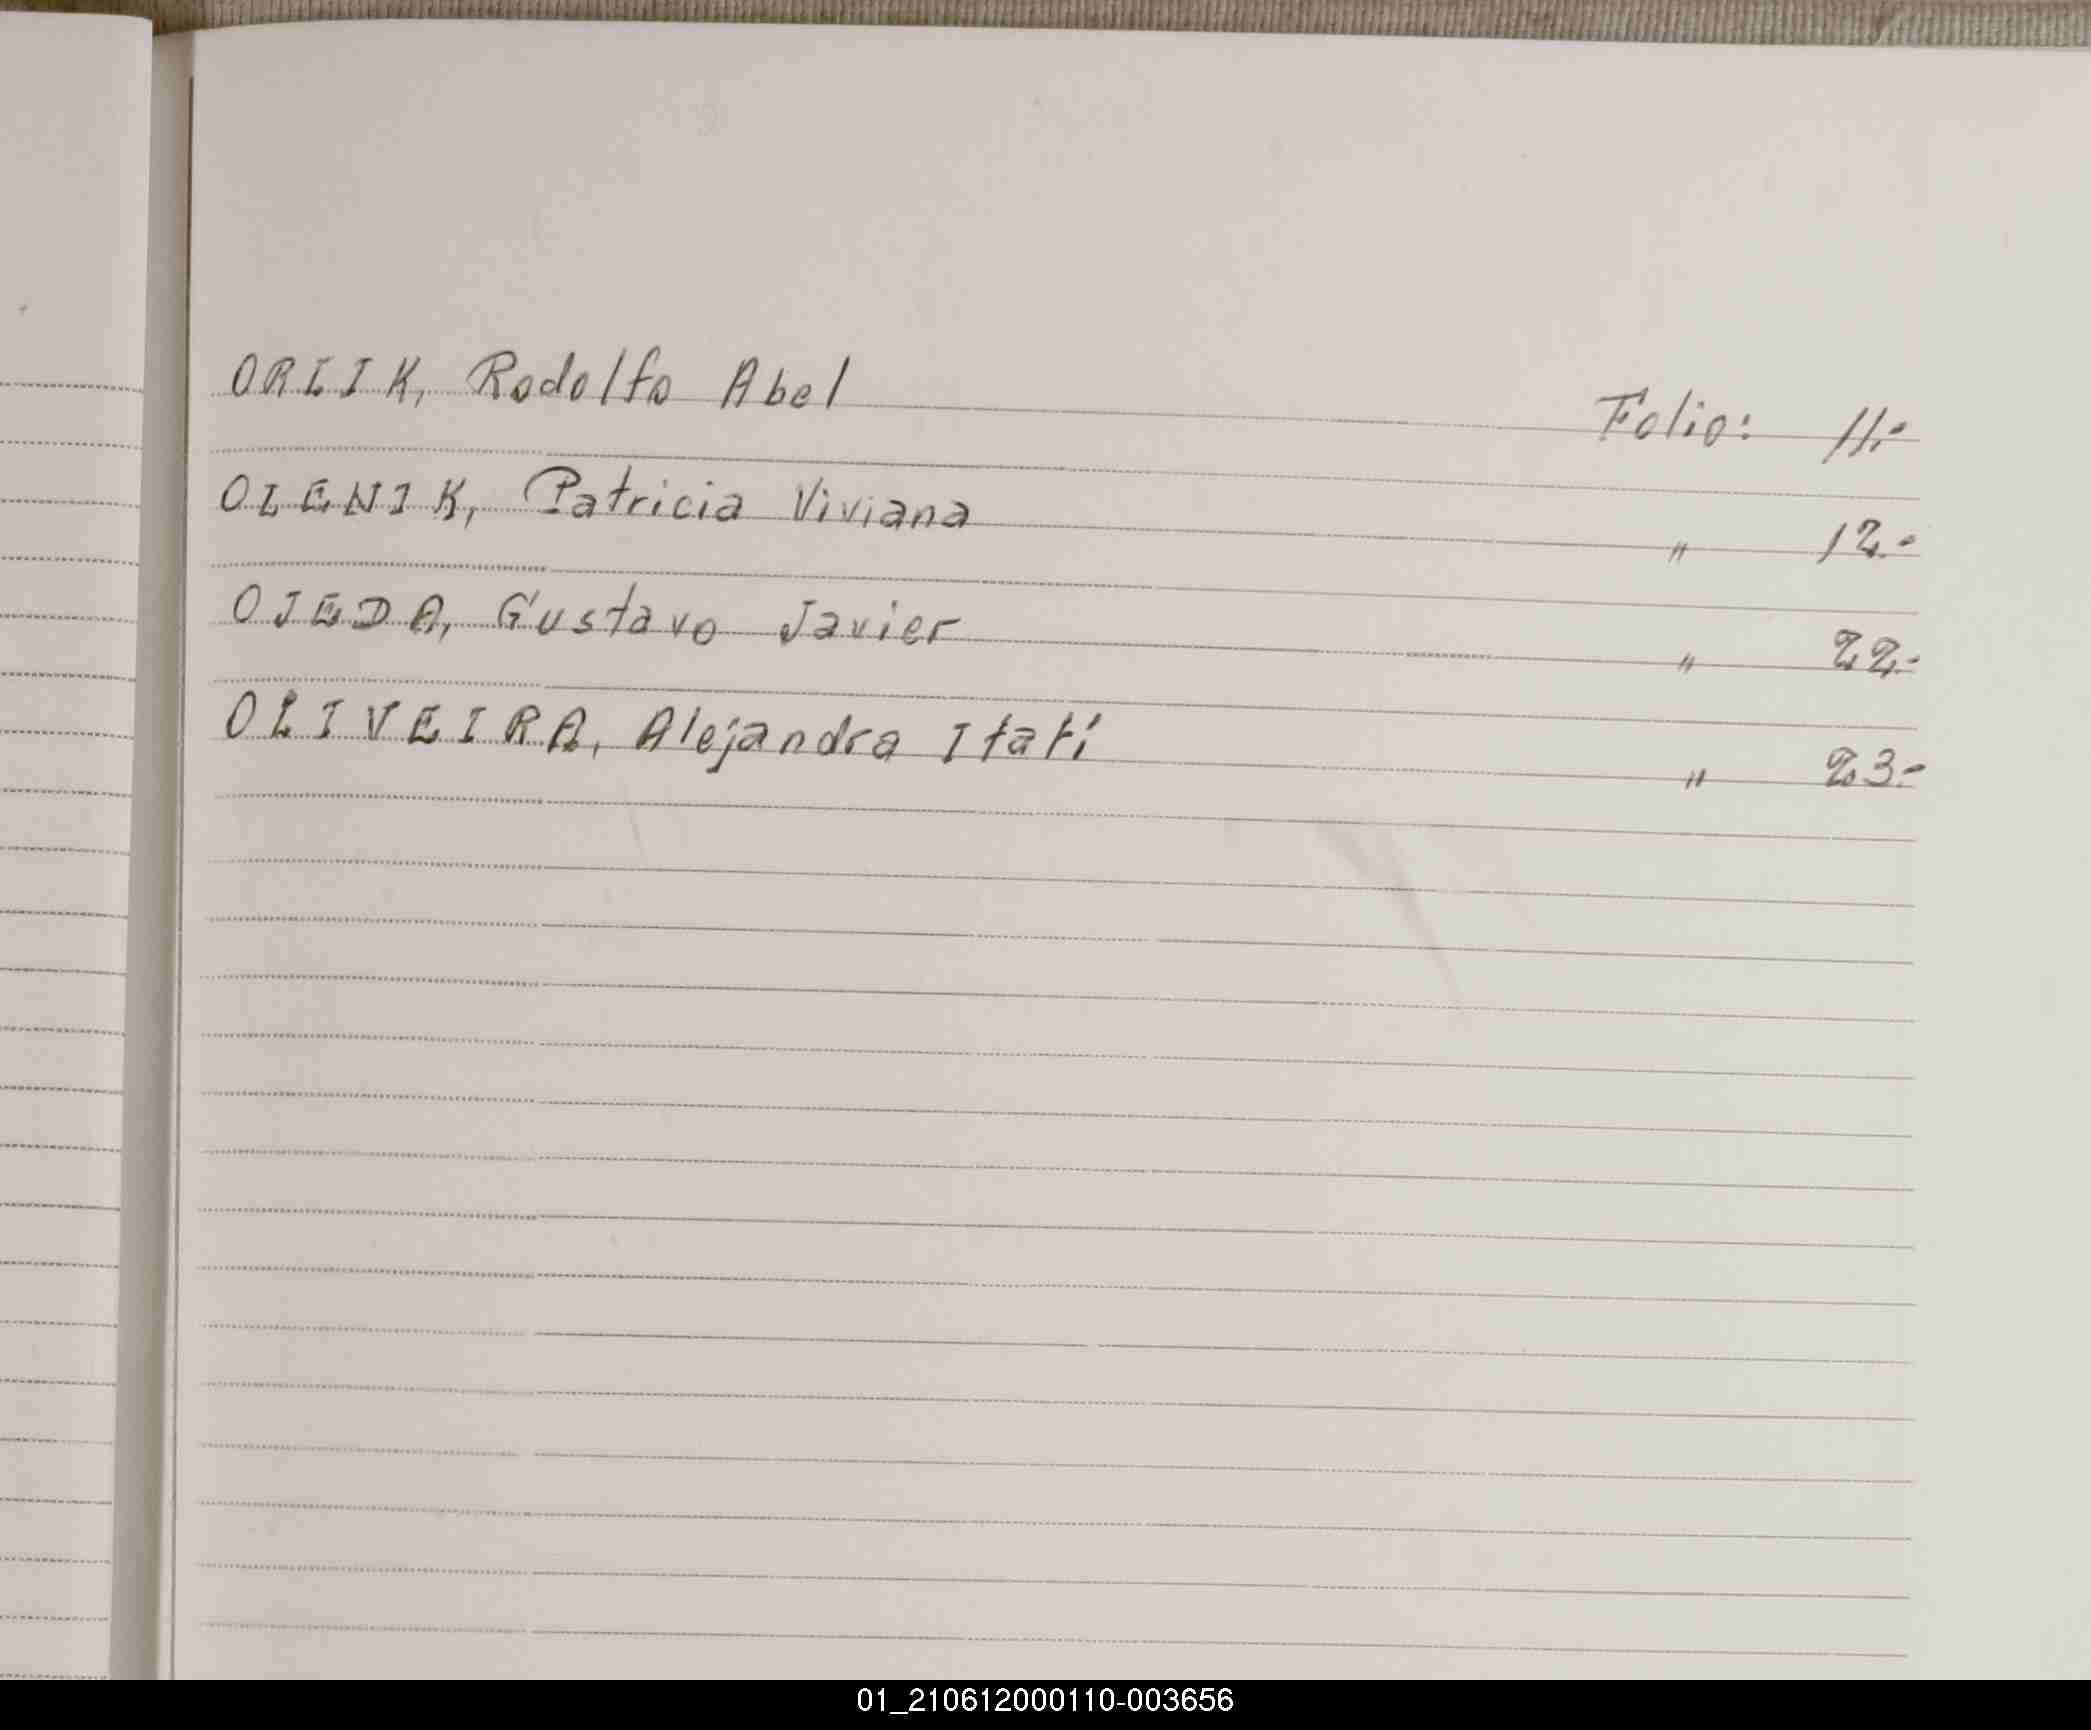 ORLIK, Rodolfo Abel Folio: 11.-
OLENIK, Patricia Viviana " 12.-
OJEDA, Gustavo Javier " 22.-
OLIVEIRA, Alejandra Itatí " 23.-
01_210612000110-003656